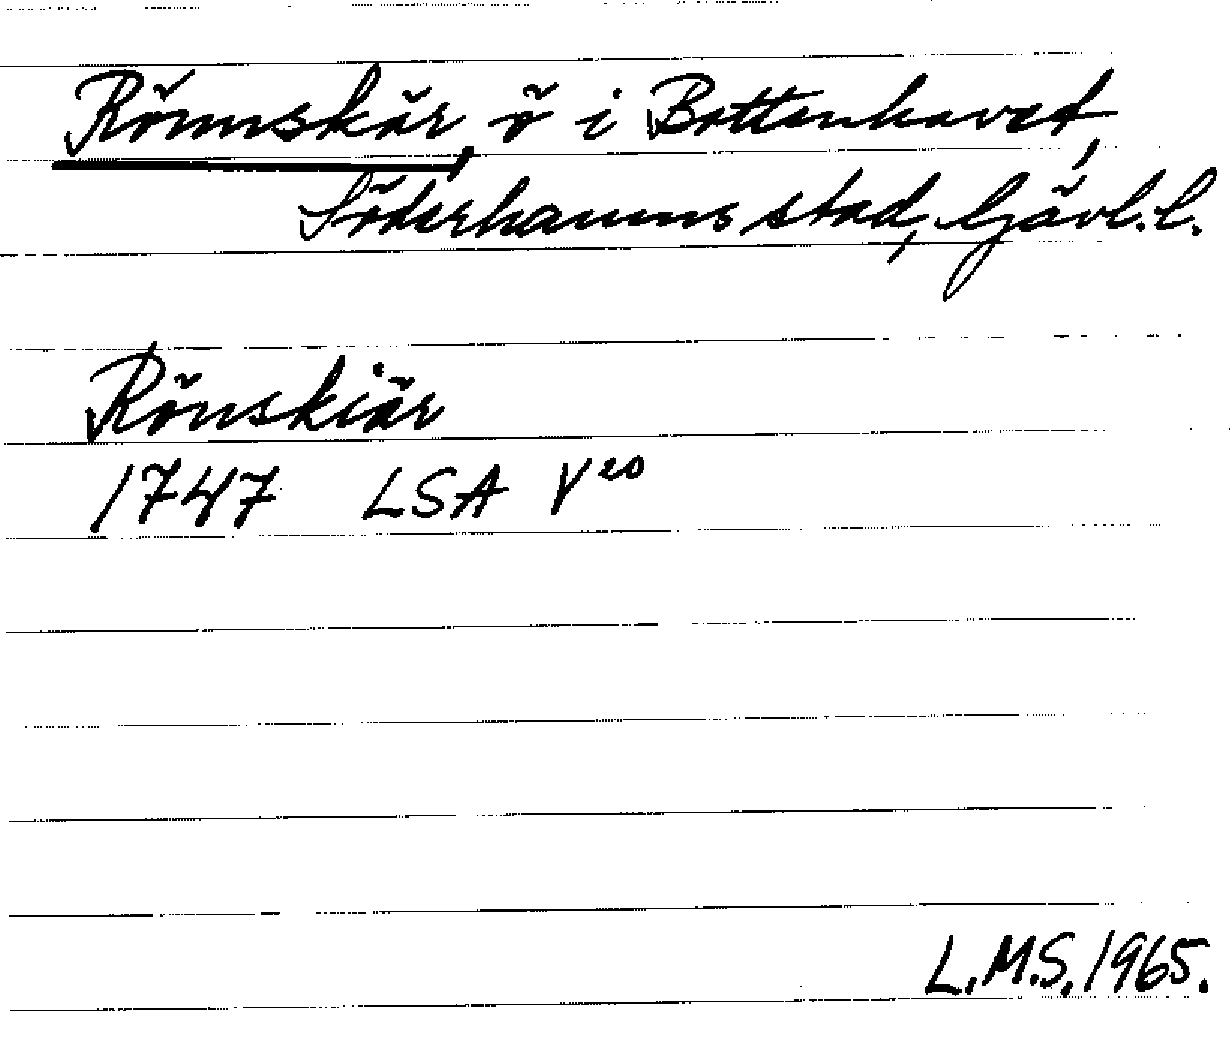 Rönnskär, ö i Bottenhavet,
Söderhamns stad, Gävl.l.
Rönskiär
1747 LSA V20
L.M.S. 1965.